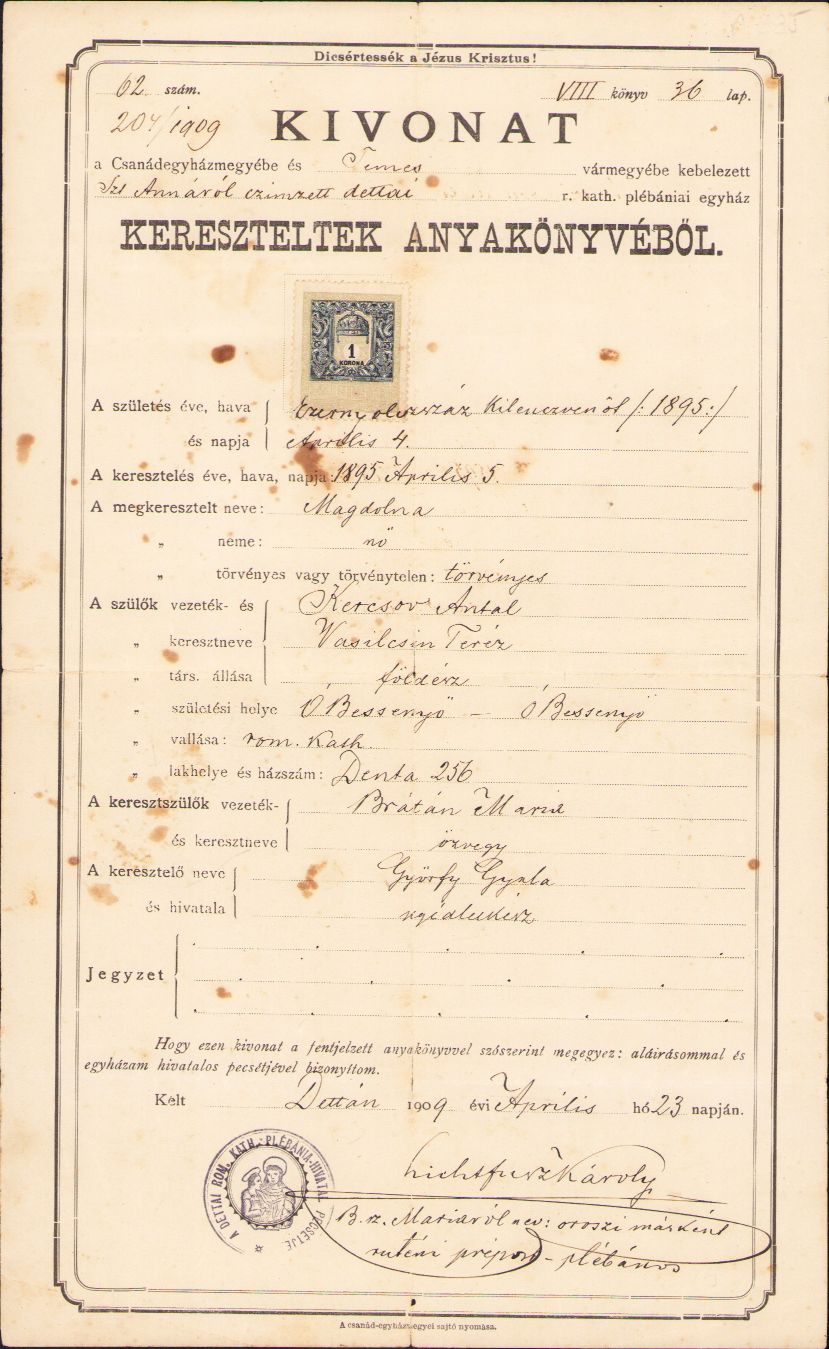 Dicsértessék a Jézus Krisztus!
62 szám. VIII könyv 36 lap.
204/1909
KIVONAT
a Csanádegyházmegyébe és Temes vármegyébe kebelezett
Szt Annáról czimzett dettai r. kath. plébániai egyház
KERESZTELTEK ANYAKÖNYVÉBŐL.
1
KORONA
A születés éve, hava Ezernyolczszáz Kilenczvenöt /: 1895 :/
és napja Április 4.
A keresztelés éve, hava, napja: 1895 Április 5.
A megkeresztelt neve: Magdolna
„ neme: nő
„ törvényes vagy törvénytelen: törvényes
A szülők vezeték- és Kercsov Antal
„ keresztneve Vasilcsin Teréz
„ társ. állása földész
„ születési helye Ó Bessenyő – Ó Bessenyő
„ vallása: rom. Kath.
„ lakhelye és házszám: Denta 256
A keresztszülők vezeték- Brátán Maria
és keresztneve özvegy
A keresztelő neve Györfy Gyula
és hivatala sgédlelkész
Jegyzet
Hogy ezen kivonat a fentjelzett anyakönyvvel szószerint megegyez: aláirásommal és
egyházam hivatalos pecsétjével bizonyitom.
Kelt Dettán 1909 évi Április hó 23 napján.
A DETTAI ROM. KATH. PLÉBÁNIA-HIVATAL PECSÉTJE
Lichtfusz Károly
B. sz. Mariáról nev: oroszi másként
ruténi prépost – plébános
A csanád-egyházmegyei sajtó nyomása.